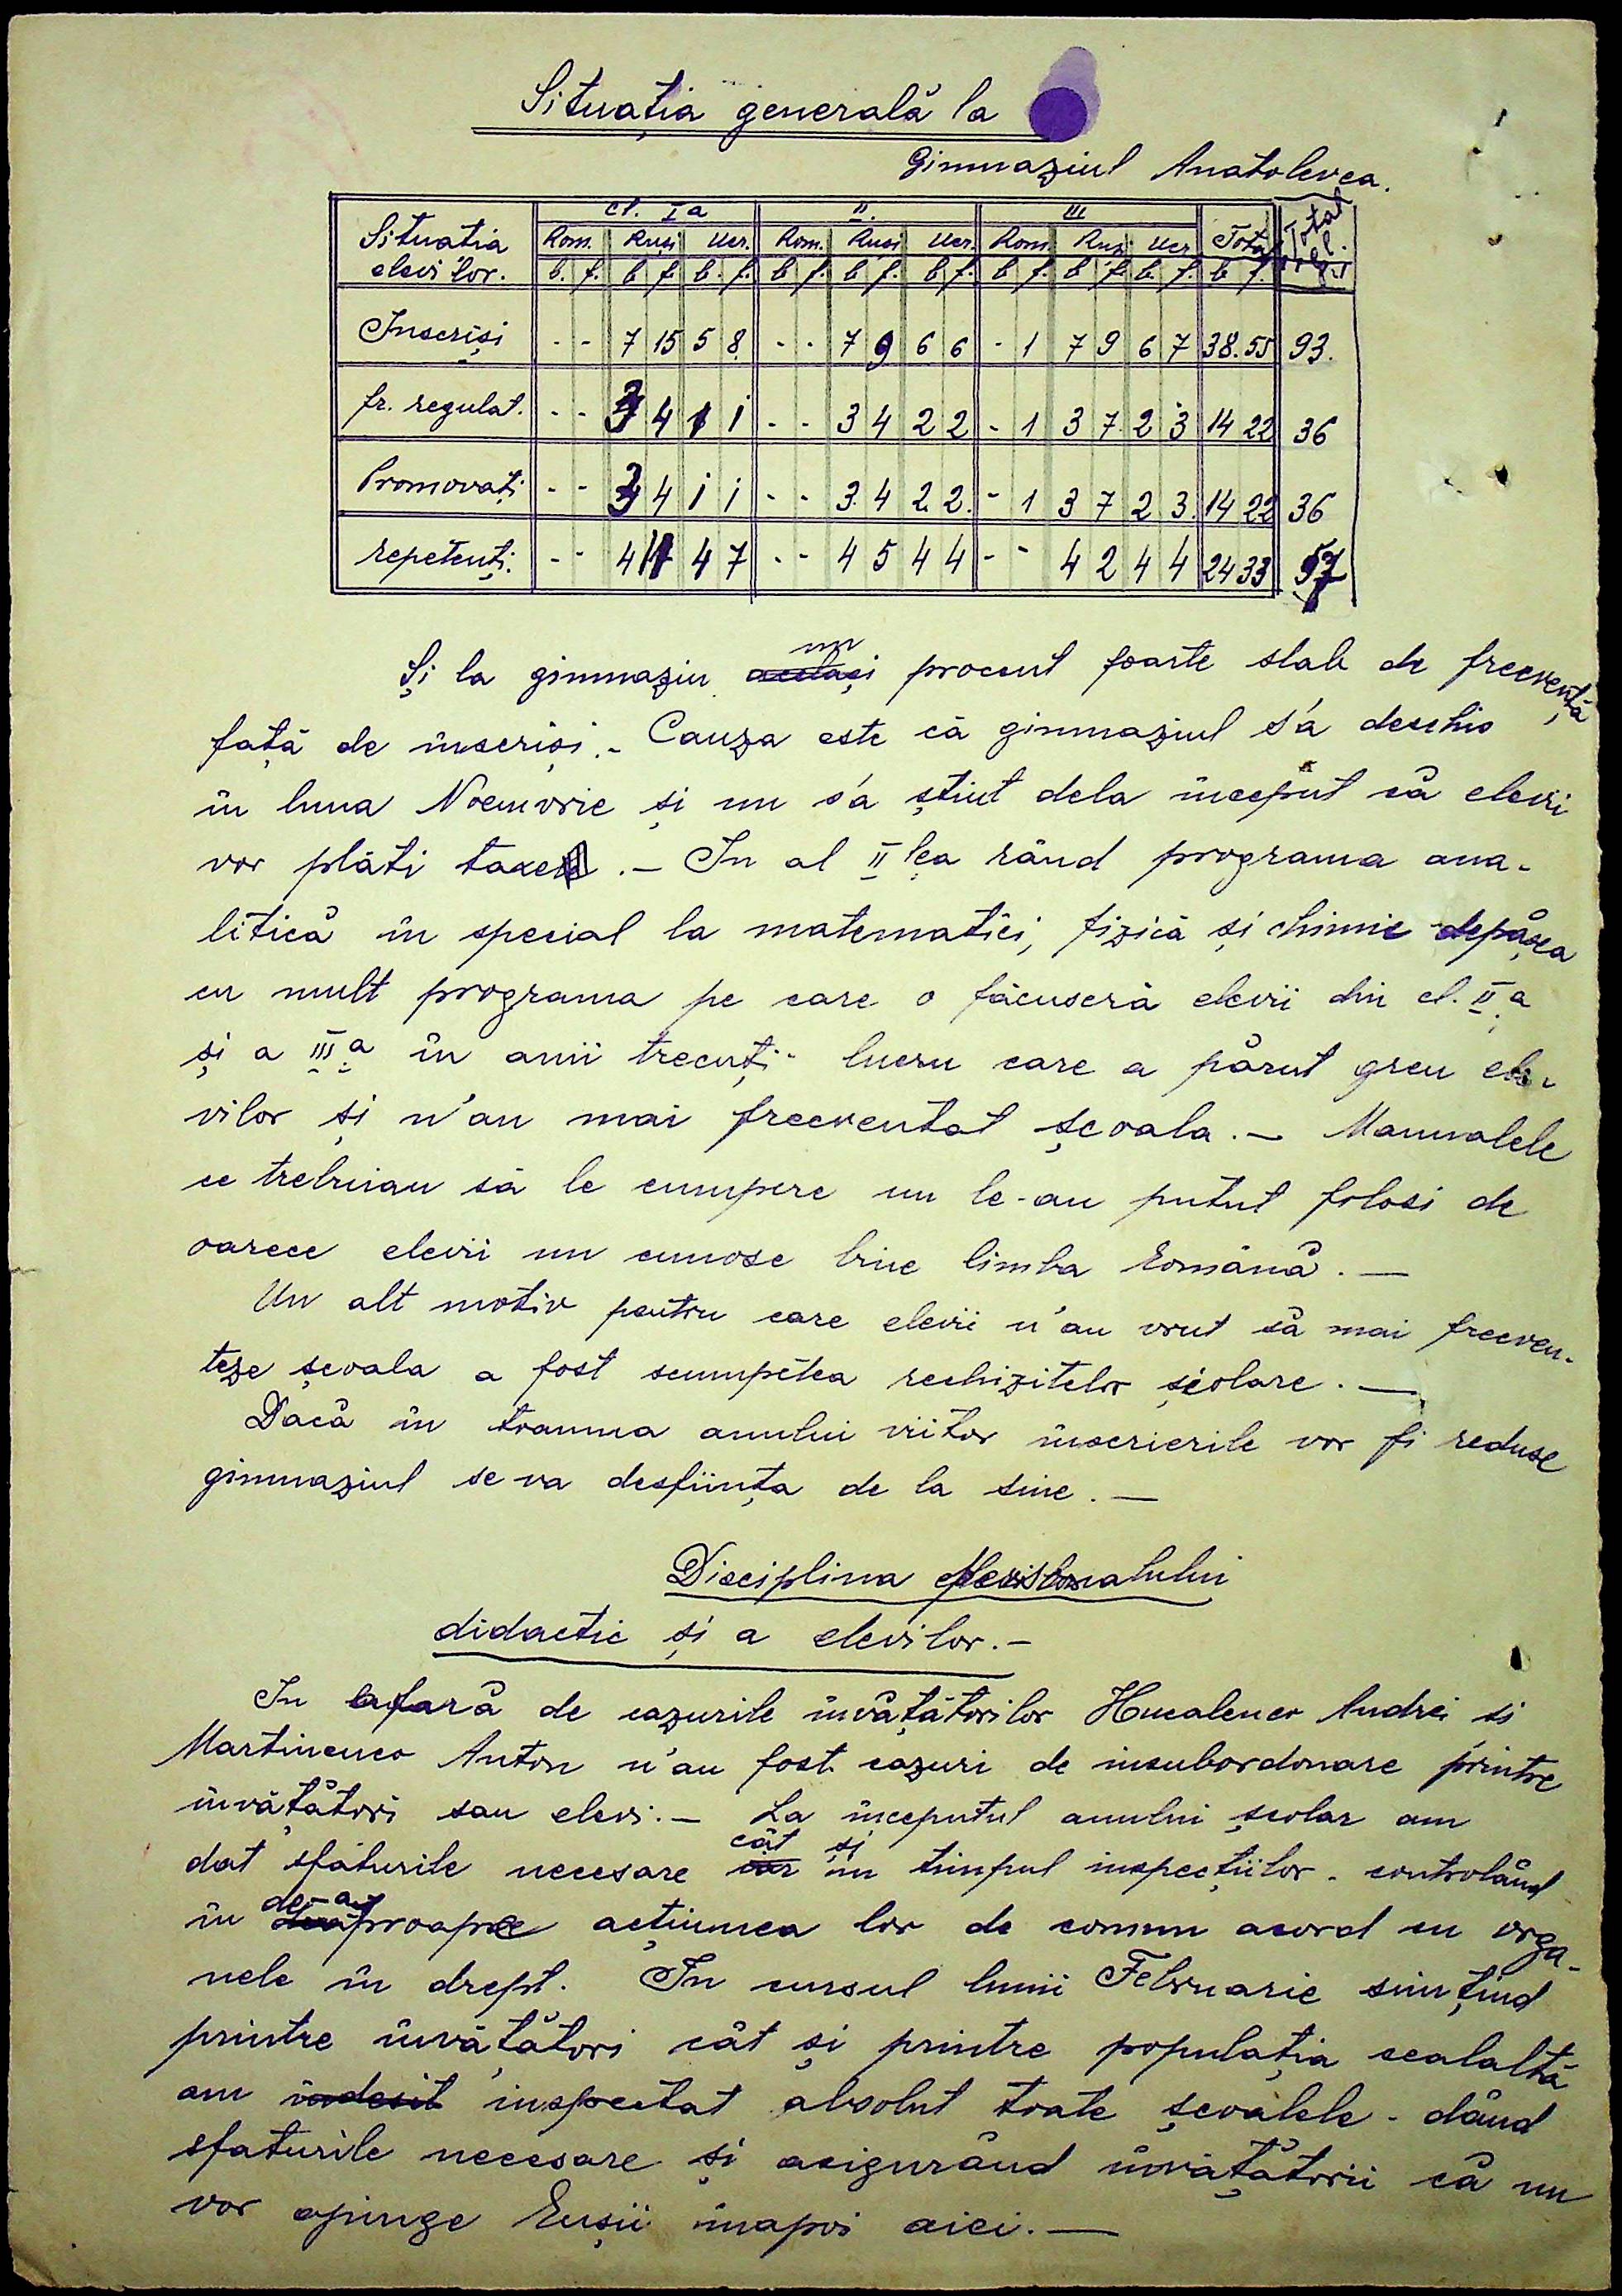 Situația generală la
Gimnaziul Anatolevca.
Situatia elevilor. cl. I a II. III Total Total
Rom. Ruși Ucr. Rom. Rusi Ucr. Rom. Ruși Ucr
b. f. b f. b. f. b f. b f. b f. b f. b f. b. f. b f.
Inscriși - - 7 15 5 8 - - 7 9 6 6 - 1 7 9 6 7 38.55 93.
fr. regulat. - - 3 4 1 1 - - 3 4 2 2 - 1 3 7 2 3 14 22 36
Promovați - - 3 4 1 1 - - 3. 4 2. 2. - 1 3 7 2 3. 14 22 36
repetenți. - - 4 11 4 7 - - 4 5 4 4 - - 4 2 4 4 24 33 57
Și la gimnaziu același un procent foarte slab de frecvență
față de inseriși.- Cauza este că gimnaziul s'a deschis
în luna Noemvrie și nu s'a știut dela început că elevi
vor plăti taxe .- In al II lea rând programa ana-
litică în special la matematici, fizică și chimie depășea
cu mult programa pe care o făcuseră elevii din cl. II a
și a III a în anii trecuți- lucru care a părut greu ele-
vilor și n'au mai frecventat școala.- Manualele
ce trebuiau să le cumpere nu le-au putut folosi de
oarece elevii nu cunosc bine limba Română.-
Un alt motiv pentru care elevii n'au vrut să mai frecven-
teze școala a fost scumpetea rechizitelor școlare.-
Dacă în toamna anului viitor înscrierile vor fi reduse
gimnaziul se va desființa de la sine.-
Disciplina personalului
didactic și a elevilor.-
In afară de cazurile învățătorilor Hucalenco Andrei si
Martinenco Anton n'au fost cazuri de insubordonare printre
învățători sau elevi.- La începutul anului școlar am
dat sfaturile necesare cât și în timpul inspecțiilor - controlând
în de-aproape acțiunea lor de comun acord cu orga-
nele în drept. In cursul lunii Februarie simțind
printre învățători cât și printre populația cealaltă
am indesit inspectat absolut toate școalele - dând
sfaturile necesare și asigurând învățătorii că nu
vor ajunge Rușii înapoi aici.-